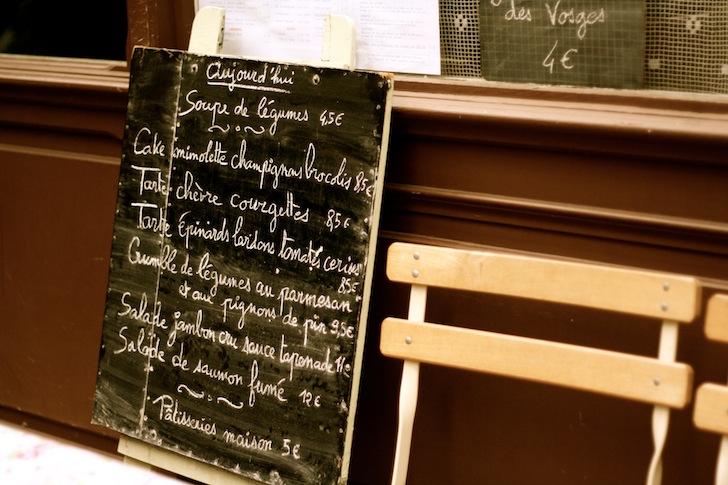 des Vosges
4€
Aujourd'hui
Soupe de légumes 4,5€
Cake mimolette champignons brocolis 8,5€
Tarte chèvre courgettes 8,5€
Tarte Épinards lardons tomates cerises
8,5€
Crumble de légumes au parmesan
et aux pignons de pin 9,5€
Salade jambon cru sauce tapenade 11€
Salade de saumon fumé 12€
Pâtisseries maison 5€